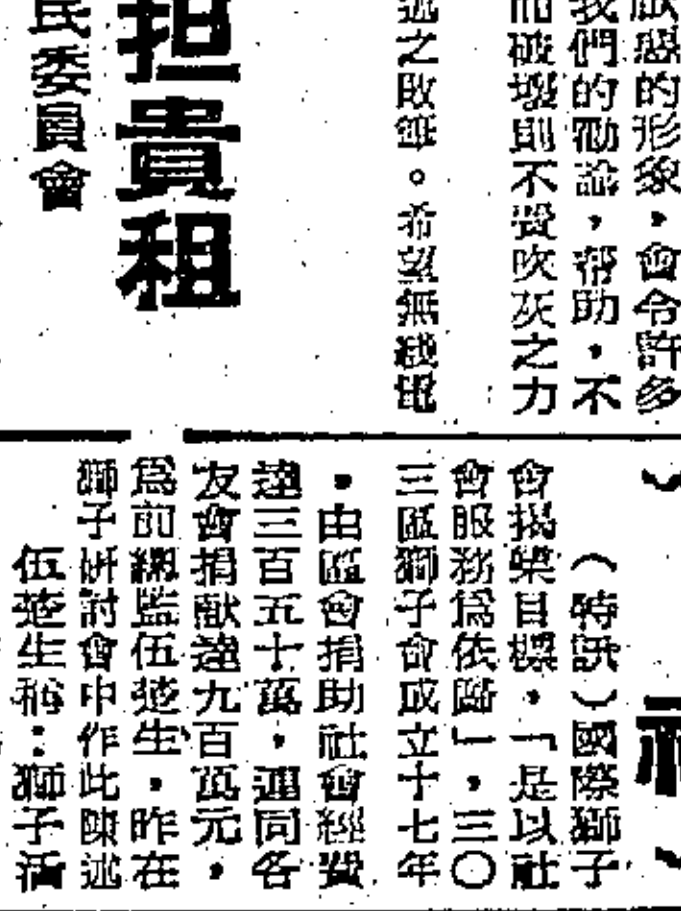 厭惡的形象，會令許多
我們的勸諭，帮助，不
而破壞則不費吹灰之力
述之敗筆。希望無綫電
担貴租
民委員會
（特訊）國際獅子
會揭櫫目標，「是以社
會服務爲依歸」，三〇
三區獅子會成立十七年
，由區會捐助社會經費
達三百五十萬，連同各
友會捐獻達九百萬元，
爲前總監伍楚生，昨在
獅子研討會中作此陳述
伍楚生稱：獅子活